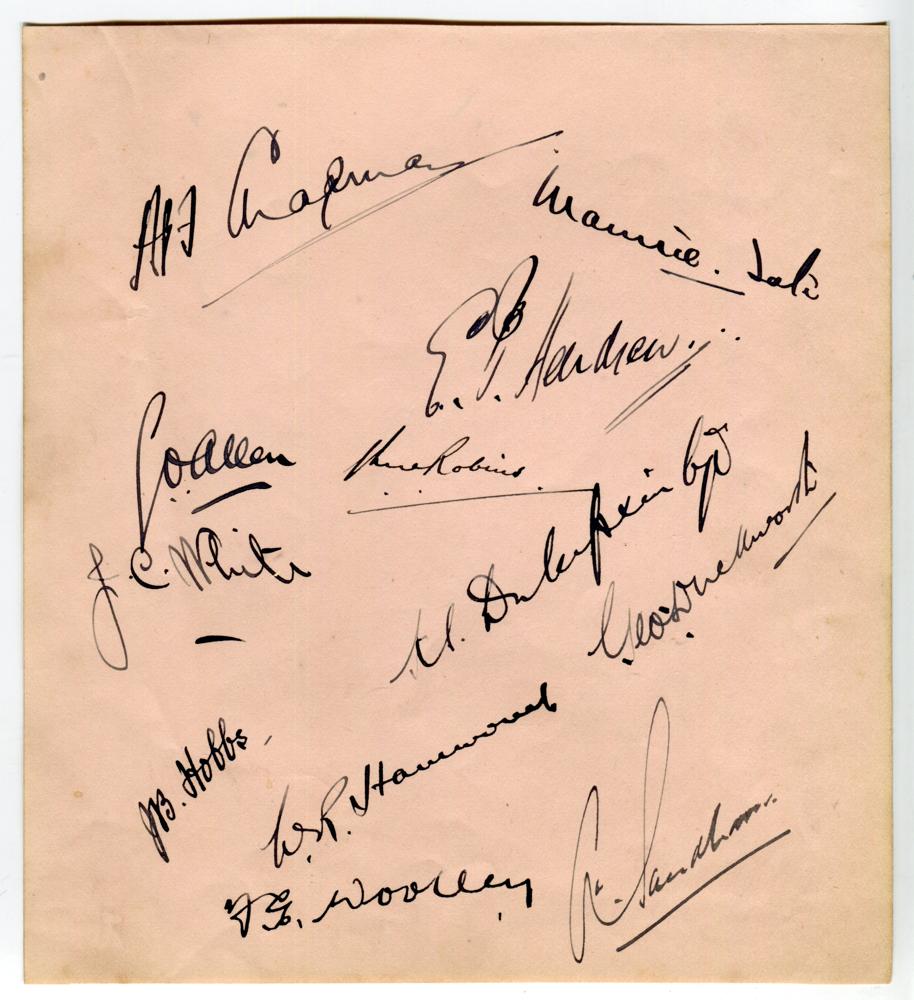 APF Chapman
Maurice. Tate
E. P. Hendren...
G.O. Allen
RWV Robins
J. C. White
K. S. Duleepsinhji
Geo. Duckworth
JB. Hobbs
W. R. Hammond
F. E. Woolley
A. Sandham